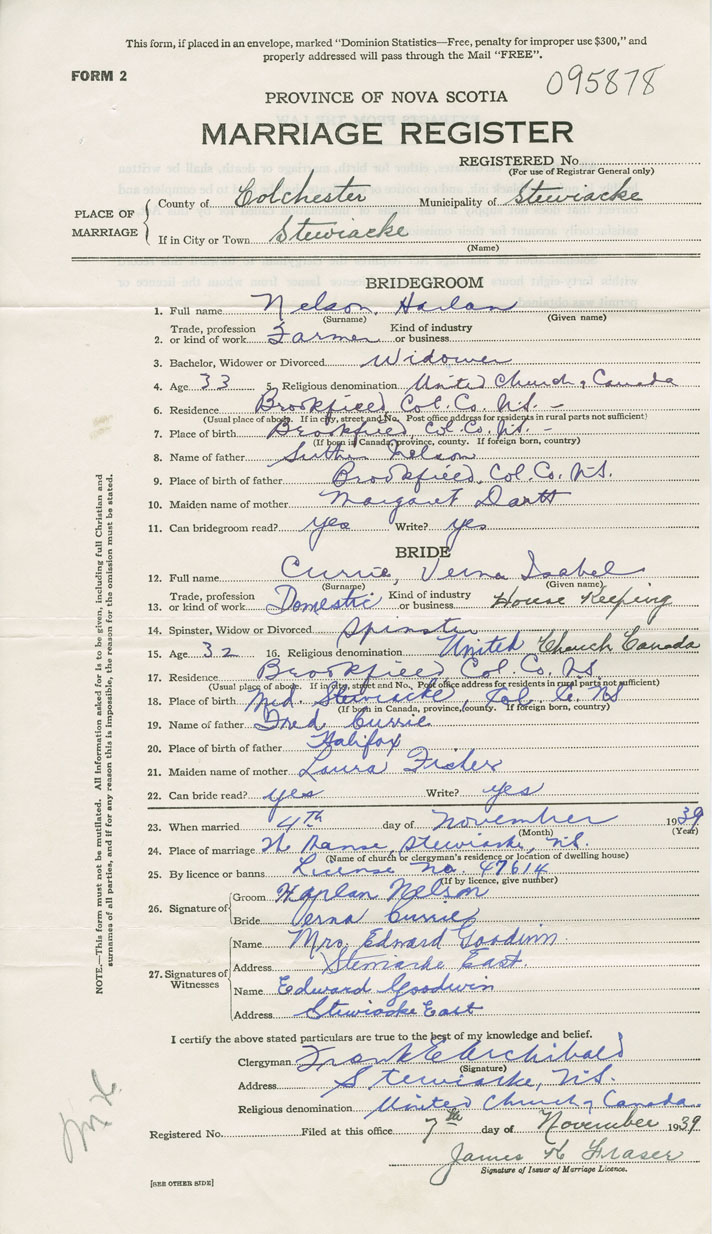 This form, if placed in an envelope, marked "Dominion Statistics—Free, penalty for improper use $300," and
properly addressed will pass through the Mail "FREE".
FORM 2
095878
PROVINCE OF NOVA SCOTIA
MARRIAGE REGISTER
REGISTERED No.
(For use of Registrar General only)
PLACE OF MARRIAGE
County of Colchester Municipality of Stewiacke
If in City or Town Stewiacke
(Name)
BRIDEGROOM
1. Full name Nelson, Harlan
(Surname) (Given name)
2. Trade, profession or kind of work Farmer Kind of industry or business
3. Bachelor, Widower or Divorced Widower
4. Age 33 5. Religious denomination United Church of Canada
6. Residence Brookfield, Col. Co. N.S.
(Usual place of abode. If in city, street and No. Post office address for residents in rural parts not sufficient)
7. Place of birth Brookfield, Col. Co. N.S.
(If born in Canada, province, county. If foreign born, country)
8. Name of father Nelson
9. Place of birth of father Brookfield, Col. Co. N.S.
10. Maiden name of mother Margaret Dartt
11. Can bridegroom read? yes Write? yes
BRIDE
12. Full name Currie, Verna Isabel
(Surname) (Given name)
13. Trade, profession or kind of work Domestic Kind of industry or business House Keeping
14. Spinster, Widow or Divorced Spinster
15. Age 32 16. Religious denomination United Church Canada
17. Residence Brookfield Col. Co. N.S.
(Usual place of abode. If in city, street and No. Post office address for residents in rural parts not sufficient)
18. Place of birth Mid. Stewiacke, Col. Co. NS
(If born in Canada, province, county. If foreign born, country)
19. Name of father Fred Currie
20. Place of birth of father Halifax
21. Maiden name of mother Laura Fisher
22. Can bride read? yes Write? yes
23. When married 4th day of November 1939
(Month) (Year)
24. Place of marriage The Manse, Stewiacke, N.S.
(Name of church or clergyman's residence or location of dwelling house)
25. By licence or banns License No. 47614
(If by licence, give number)
26. Signature of
Groom Harlan Nelson
Bride Verna Currie
27. Signatures of Witnesses
Name Mrs. Edward Goodwin
Address Stewiacke East.
Name Edward Goodwin
Address Stewiacke East
I certify the above stated particulars are true to the best of my knowledge and belief.
Clergyman Frank E Archibald
(Signature)
Address Stewiacke, N.S.
Religious denomination United Church of Canada
Registered No. Filed at this office 7th day of November 1939
James K Fraser
Signature of Issuer of Marriage Licence.
[SEE OTHER SIDE]
NOTE.—This form must not be mutilated. All information asked for is to be given, including full Christian and
surnames of all parties, and if for any reason this is impossible, the reason for the omission must be stated.